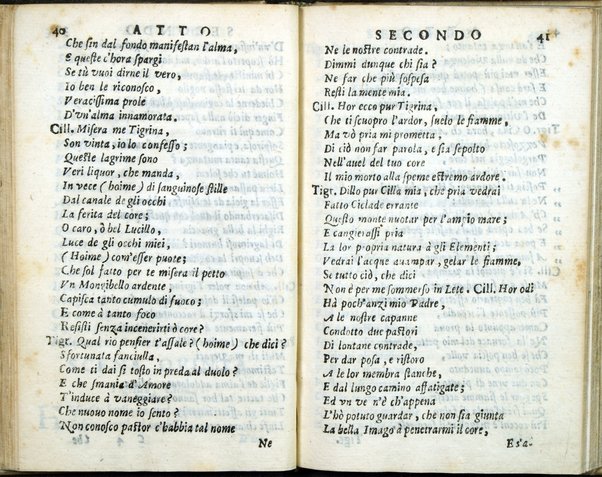 40 ATTO
Che sin dal fondo manifestan l'alma,
E queste c'hora spargi
Se tù vuoi dirne il vero,
Io ben le riconosco,
Veracissima prole
D'vn'alma innamorata.
Cill. Misera me Tigrina,
Son vinta, io lo confesso;
Queste lagrime sono
Veri liquor, che manda,
In vece (hoime) di sanguinose stille
Dal canale de gli occhi
La ferita del core;
O caro, ò bel Lucillo,
Luce de gli occhi miei,
(Hoime) com'esser puote;
Che sol fatto per te misera il petto
Vn Mongibello ardente,
Capisca tanto cumulo di fuoco;
E come à tanto foco
Resisti senza incenerirti ò core?
Tigr. Qual rio pensier t'assale? (hoime) che dici?
Sfortunata fanciulla,
Come ti dai sì tosto in preda al duolo?
E che smania d'Amore
T'induce à vaneggiare?
Che nuouo nome io sento?
Non conosco pastor c'habbia tal nome
Ne
SECONDO 41
Ne le nostre contrade.
Dimmi dunque chi sia?
Ne far che più sospesa
Resti la mente mia.
Cill. Hor ecco pur Tigrina,
Che ti scuopro l'ardor, suelo le fiamme,
Ma vò pria mi prometta,
Di ciò non far parola, e sia sepolto
Nell'auel del tuo core
Il mio morto alla speme estremo ardore.
Tigr. Dillo pur Cilla mia, che pria vedrai
Fatto Ciclade errante
Questo monte nuotar per l'ampio mare;
E cangierassi pria
La lor propria natura à gli Elementi;
Vedrai l'acque auampar, gelar le fiamme,
Se tutto ciò, che dici
Non è per me sommerso in Lete. Cill. Hor odi
Hà poch'anzi mio Padre,
A le nostre capanne
Condotto due pastori
Di lontane contrade,
Per dar posa, e ristoro
A le lor membra stanche,
E dal lungo camino affatigate;
Ed vn ve n'è ch'appena
L'hò potuto guardar, che non sia giunta
La bella Imago à penetrarmi il core,
Essa-